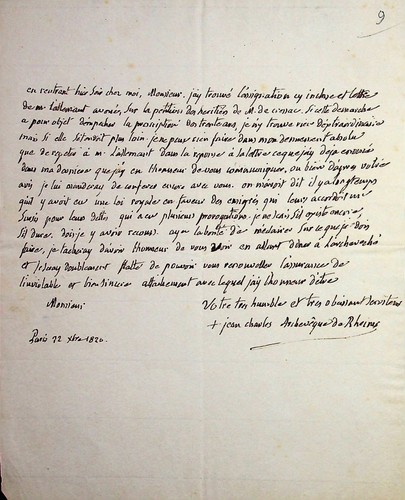 9
en rentrant hier soir chez moi, Monsieur, j'ay trouvé l'assignation cy incluse et lettre
de mr lallemant avoué, sur la petition des heritiers de M. de cressac. Si cette demarche
a pour objet d'empecher la prescription des trente ans, je n'y trouve rien d'extraordinaire
mais si elle s'etendoit plus loin je ne peux rien faire dans mon denuement absolu
que de repeter à mr lallemant dans la reponse à la lettre ce que j'ay deja enoncé
dans ma derniere que j'ay eu l'honneur de vous communiquer, ou bien d'apres votre
avis je lui manderai de conferer encore avec vous. on m'avoit dit il y a longtemps
qu'il y avoit eu une loi rendue en faveur des emigrés qui leurs accordoit un
sursis pour leurs dettes qui a eu plusieurs prorogations. je ne sais s'il existe encore,
s'il dure. dois je y avoir recours. ayez la bonté de me dire sur ce que je dois
faire, je tacheray d'avoir l'honneur de vous voir en allant diner à l'archeveché
et je seray doublement flatté de pouvoir vous renouveller l'assurance de
l'inviolable et bien sincere attachement avec lequel j'ay l'honneur d'etre
Monsieur
Votre tres humble et tres obeissant serviteur
+ jean charles Archevêque de Rheims
Paris 22 xbre 1820.